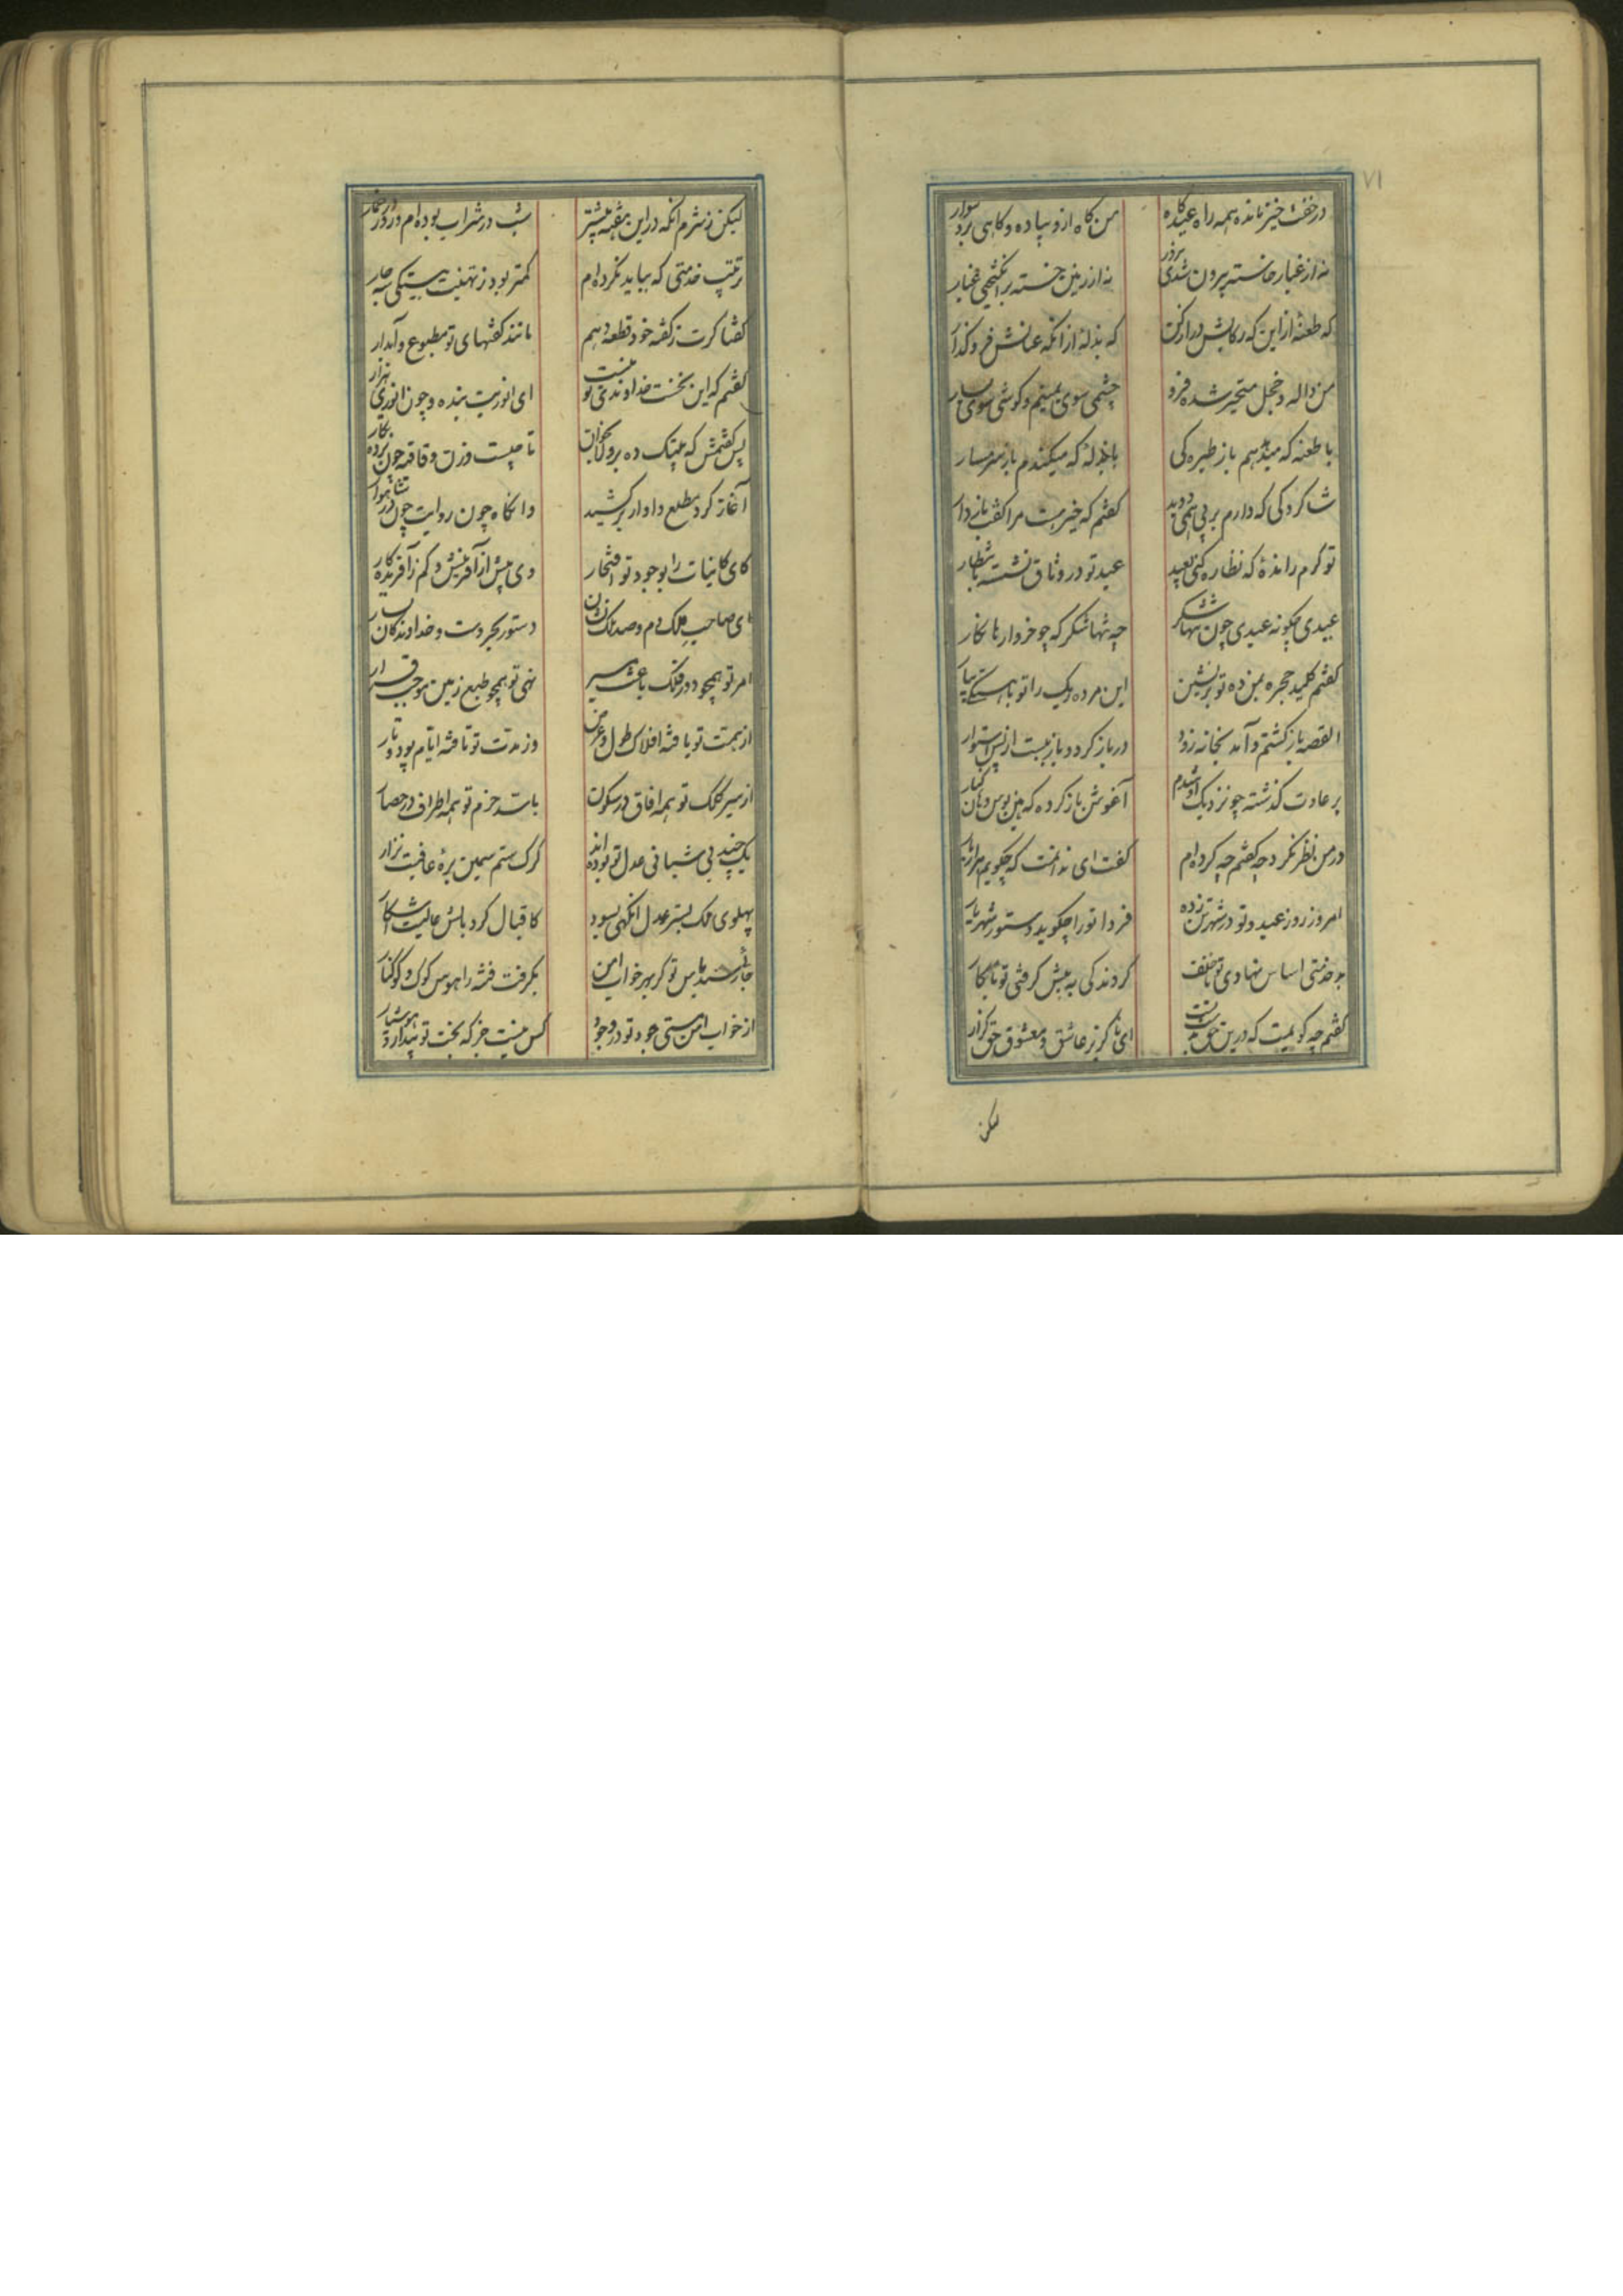 ۷۱
در خفت خیز مانده همه راه عیدگاه من گاه ازو پیاده و گاهی برو سوار
نه از غبار خاسته بیرون شدی بزور نه از زمین خسته برانگیختی غبار
که طعنهٔ ازین که رکابش دراز کن که بذلهٔ از آنکه عنانش فرو گذار
من واله و خجل متحیر شده فرو چشمی سوی یمینم و گوشی سوی یسار
با طعنه که میدهم باز طیره کی با بذله که میکندم باز شرمسار
شاکردکی که دارم بر پی همی دوید گفتم که خیر هست مرا گفت بازدار
تو گرم راندهٔ که نظاره کنی بعید عید تو در وثاق نشسته بانتظار
عیدی چگونه عیدی چون تنگها شکر چه تنگها شکر که چو خروارها نگار
گفتم کلید حجره بمن ده تو برنشین این مرده ریک را تو باهستگی بیار
القصه بازگشتم و آمد بخانه زود در باز کرد و باز ببست از پس استوار
بر عادت گذشته چو نزدیک او شدم آغوش باز کرده که هین بوس و هان کنار
در من نظر نکرد چه گفتم چه کرده‌ام گفت ای ندانمت که چگویم هزار بار
امروز روز عید و تو در شهر تن زده فردا تو را چگوید دستور شهریار
بد خدمتی اساس نهادی تو ناخلف کردندکی به پیش گرفتی تو نابکار
گفتم چه گویمت که درین حق بدست تست ای ناگزیر عاشق و معشوق حق گزار
لیکن
لیکن ز شرم آنکه درین هفته بیشتر شب در شراب بوده‌ام و روز در خمار
ترتیب خدمتی که بباید نکرده‌ام کمتر بود ز تهنیت بیتکی سه چار
گفتا گرت ز گفته خود قطعه دهم مانند گفتهای تو مطبوع و آبدار
گفتم که این نخست خداوندی تو نیست ای انوریت بنده و چون انوری هزار
پس گفتمش که بیتک ده بر ولا بخوان تا چیست وزن و قافیه چون برده بکار
آغاز کرد مطلع و اواز برکشید وانگاه چون روایت چون در شاهوار
کای کاینات را بوجود تو افتخار وی بیش از آفرینش و کم ز آفریدگار
ای صاحب ملک دم و صدر ملک نشان دستور بحر دست و خداوند کان یسار
امر تو همچو دور فلک باعث مسیر نهی تو همچو طبع زمین موجب قرار
از همت تو یافته افلاک طول و عرض وز مدت تو تافته ایام پود و تار
از سیر کلک تو همه آفاق در سکون با سد حزم تو همه اطراف در حصار
یک چند بی شبانی عدل تو بوده‌اند گرگ ستم سمین برهٔ عافیت نزار
پهلوی ملک بستر عدل آنگهی بسود کاقبال کرد بالش عالیت آشکار
جائی رسید پاس تو کز بهر خواب امن بگرفت فتنه را هوس کوک و کوکنار
از خواب امن و مستی جود تو در وجود کس نیست جز که بخت تو بیدار و هوشیار